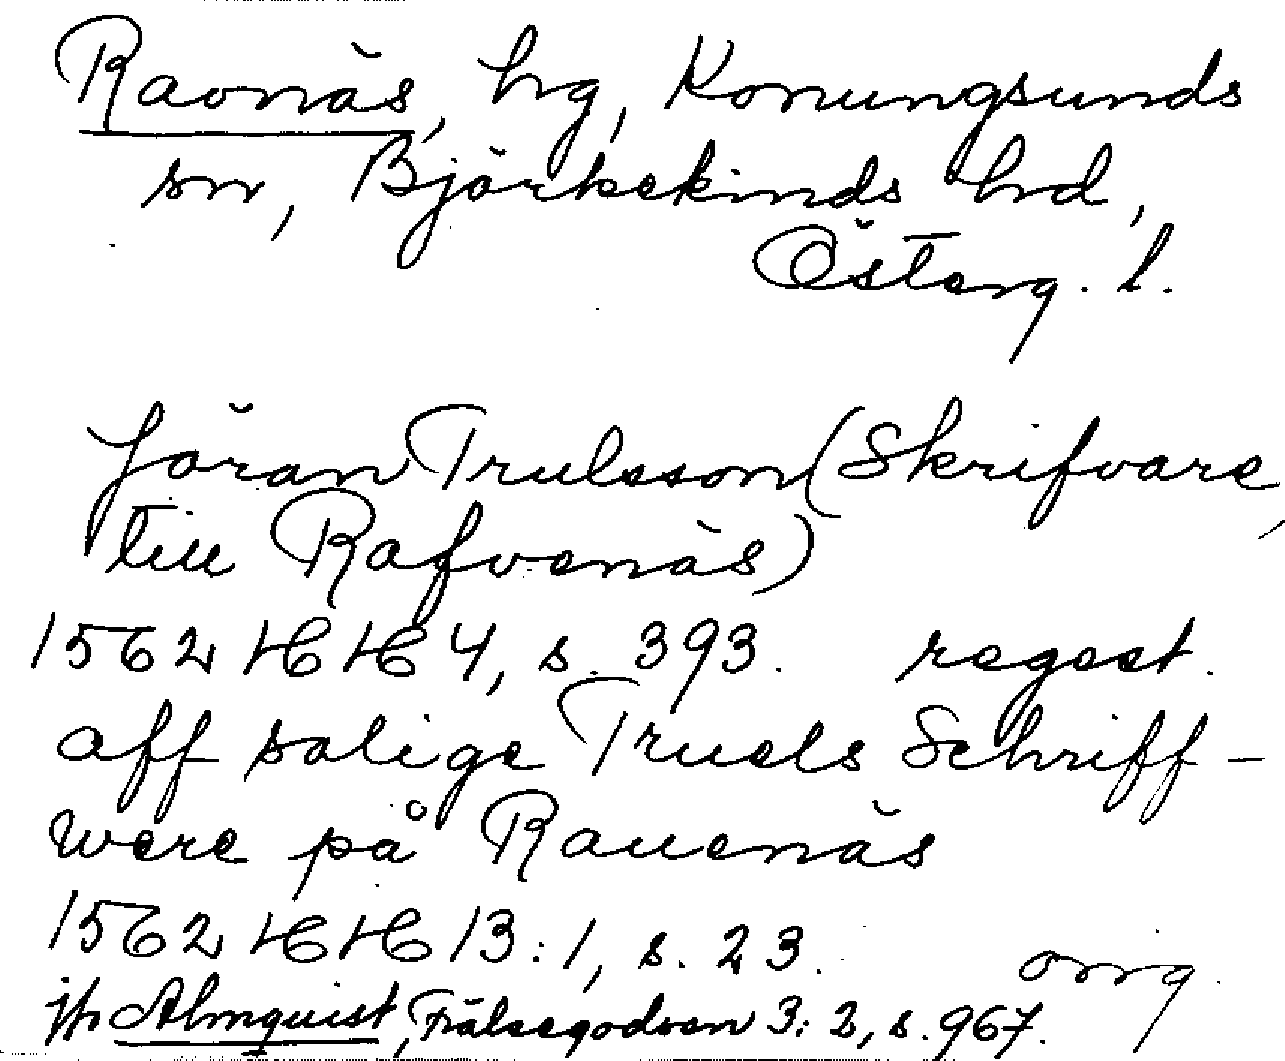 Ravnäs, hg, Konungsunds
sn, Björkekinds hd,
Österg. l.
Jöran Trulsson (Skrifvare,
till Rafvenäs)
1562 HH 4, s. 393. regest.
aff salige Truels Schriff-
were på Rauenäs
1562 HH 13:1, s. 23. orig.
jfr Almquist, Frälsegodsen 3:2, s. 967.